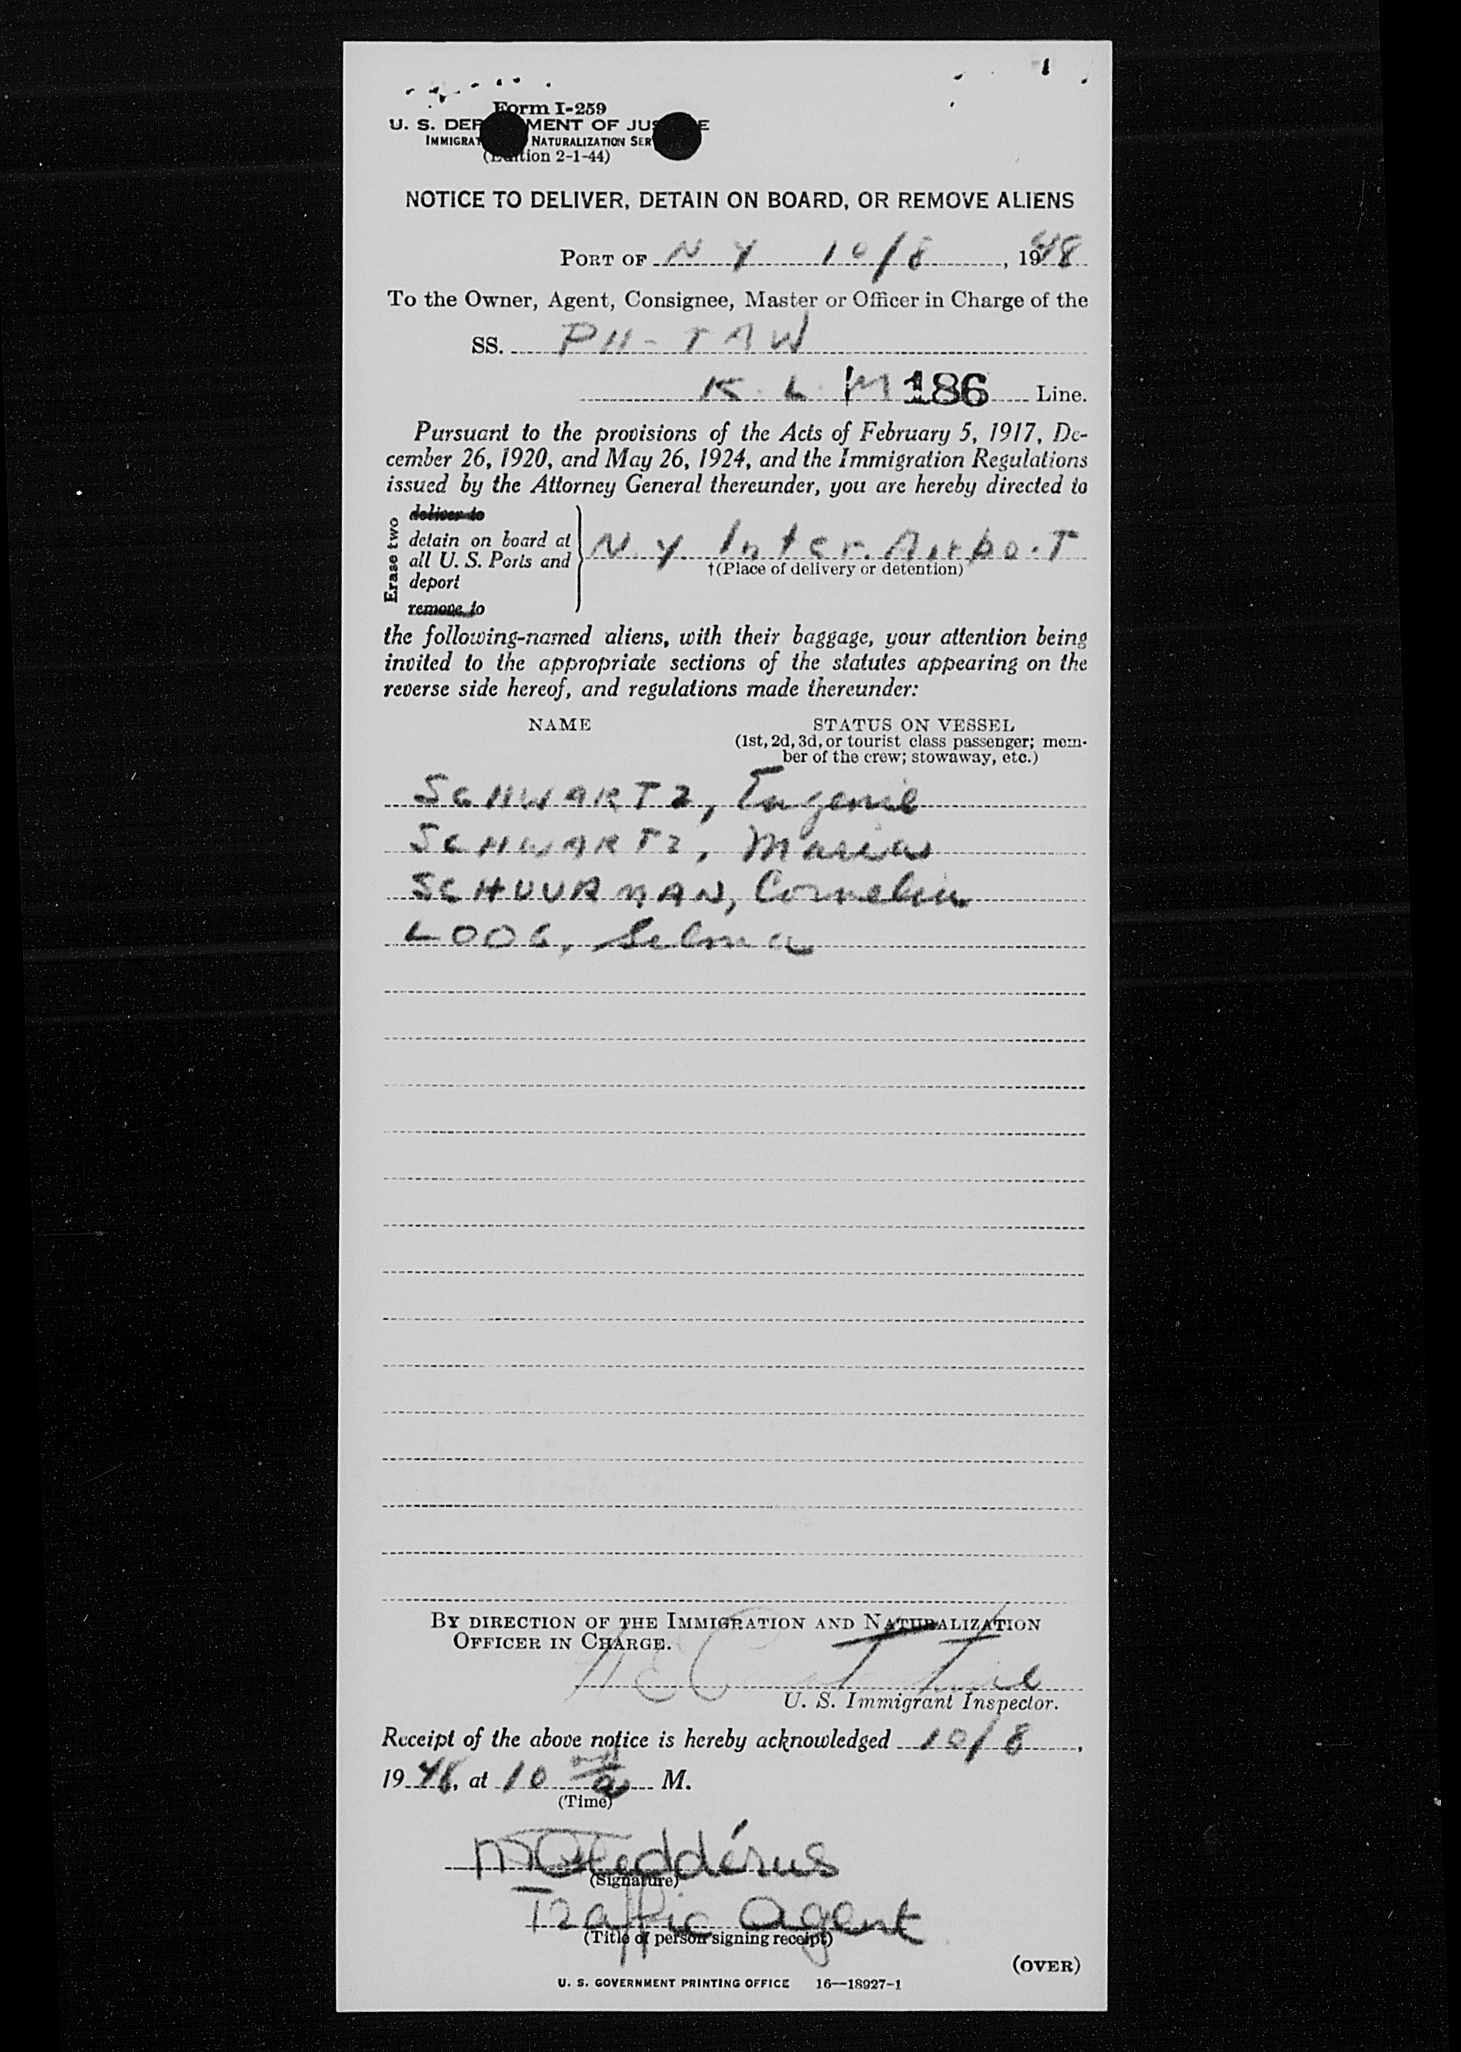 Form I-259
U. S. DEPARTMENT OF JUSTICE
IMMIGRATION NATURALIZATION SERVICE
(Edition 2-1-44)
NOTICE TO DELIVER, DETAIN ON BOARD, OR REMOVE ALIENS
PORT OF N Y 10/8, 1948
To the Owner, Agent, Consignee, Master or Officer in Charge of the
SS. PH-TAW
K. L. M 186 Line.
Pursuant to the provisions of the Acts of February 5, 1917, De-
cember 26, 1920, and May 26, 1924, and the Immigration Regulations
issued by the Attorney General thereunder, you are hereby directed to
Erase two
deliver to
detain on board at
all U. S. Ports and
deport
remove to
N. Y Inter. Airport
†(Place of delivery or detention)
the following-named aliens, with their baggage, your attention being
invited to the appropriate sections of the statutes appearing on the
reverse side hereof, and regulations made thereunder:
NAME STATUS ON VESSEL
(1st, 2d, 3d, or tourist class passenger; mem-
ber of the crew; stowaway, etc.)
SCHWARTZ, Eugenie
SCHWARTZ, Maria
SCHUURMAN, Cornelia
LOOG, Selma
BY DIRECTION OF THE IMMIGRATION AND NATURALIZATION
OFFICER IN CHARGE.
U. S. Immigrant Inspector.
Receipt of the above notice is hereby acknowledged 10/8,
1948, at 10 a M.
(Time)
(Signature)
Traffic Agent
(Title of person signing receipt)
(OVER)
U. S. GOVERNMENT PRINTING OFFICE 16—18927-1